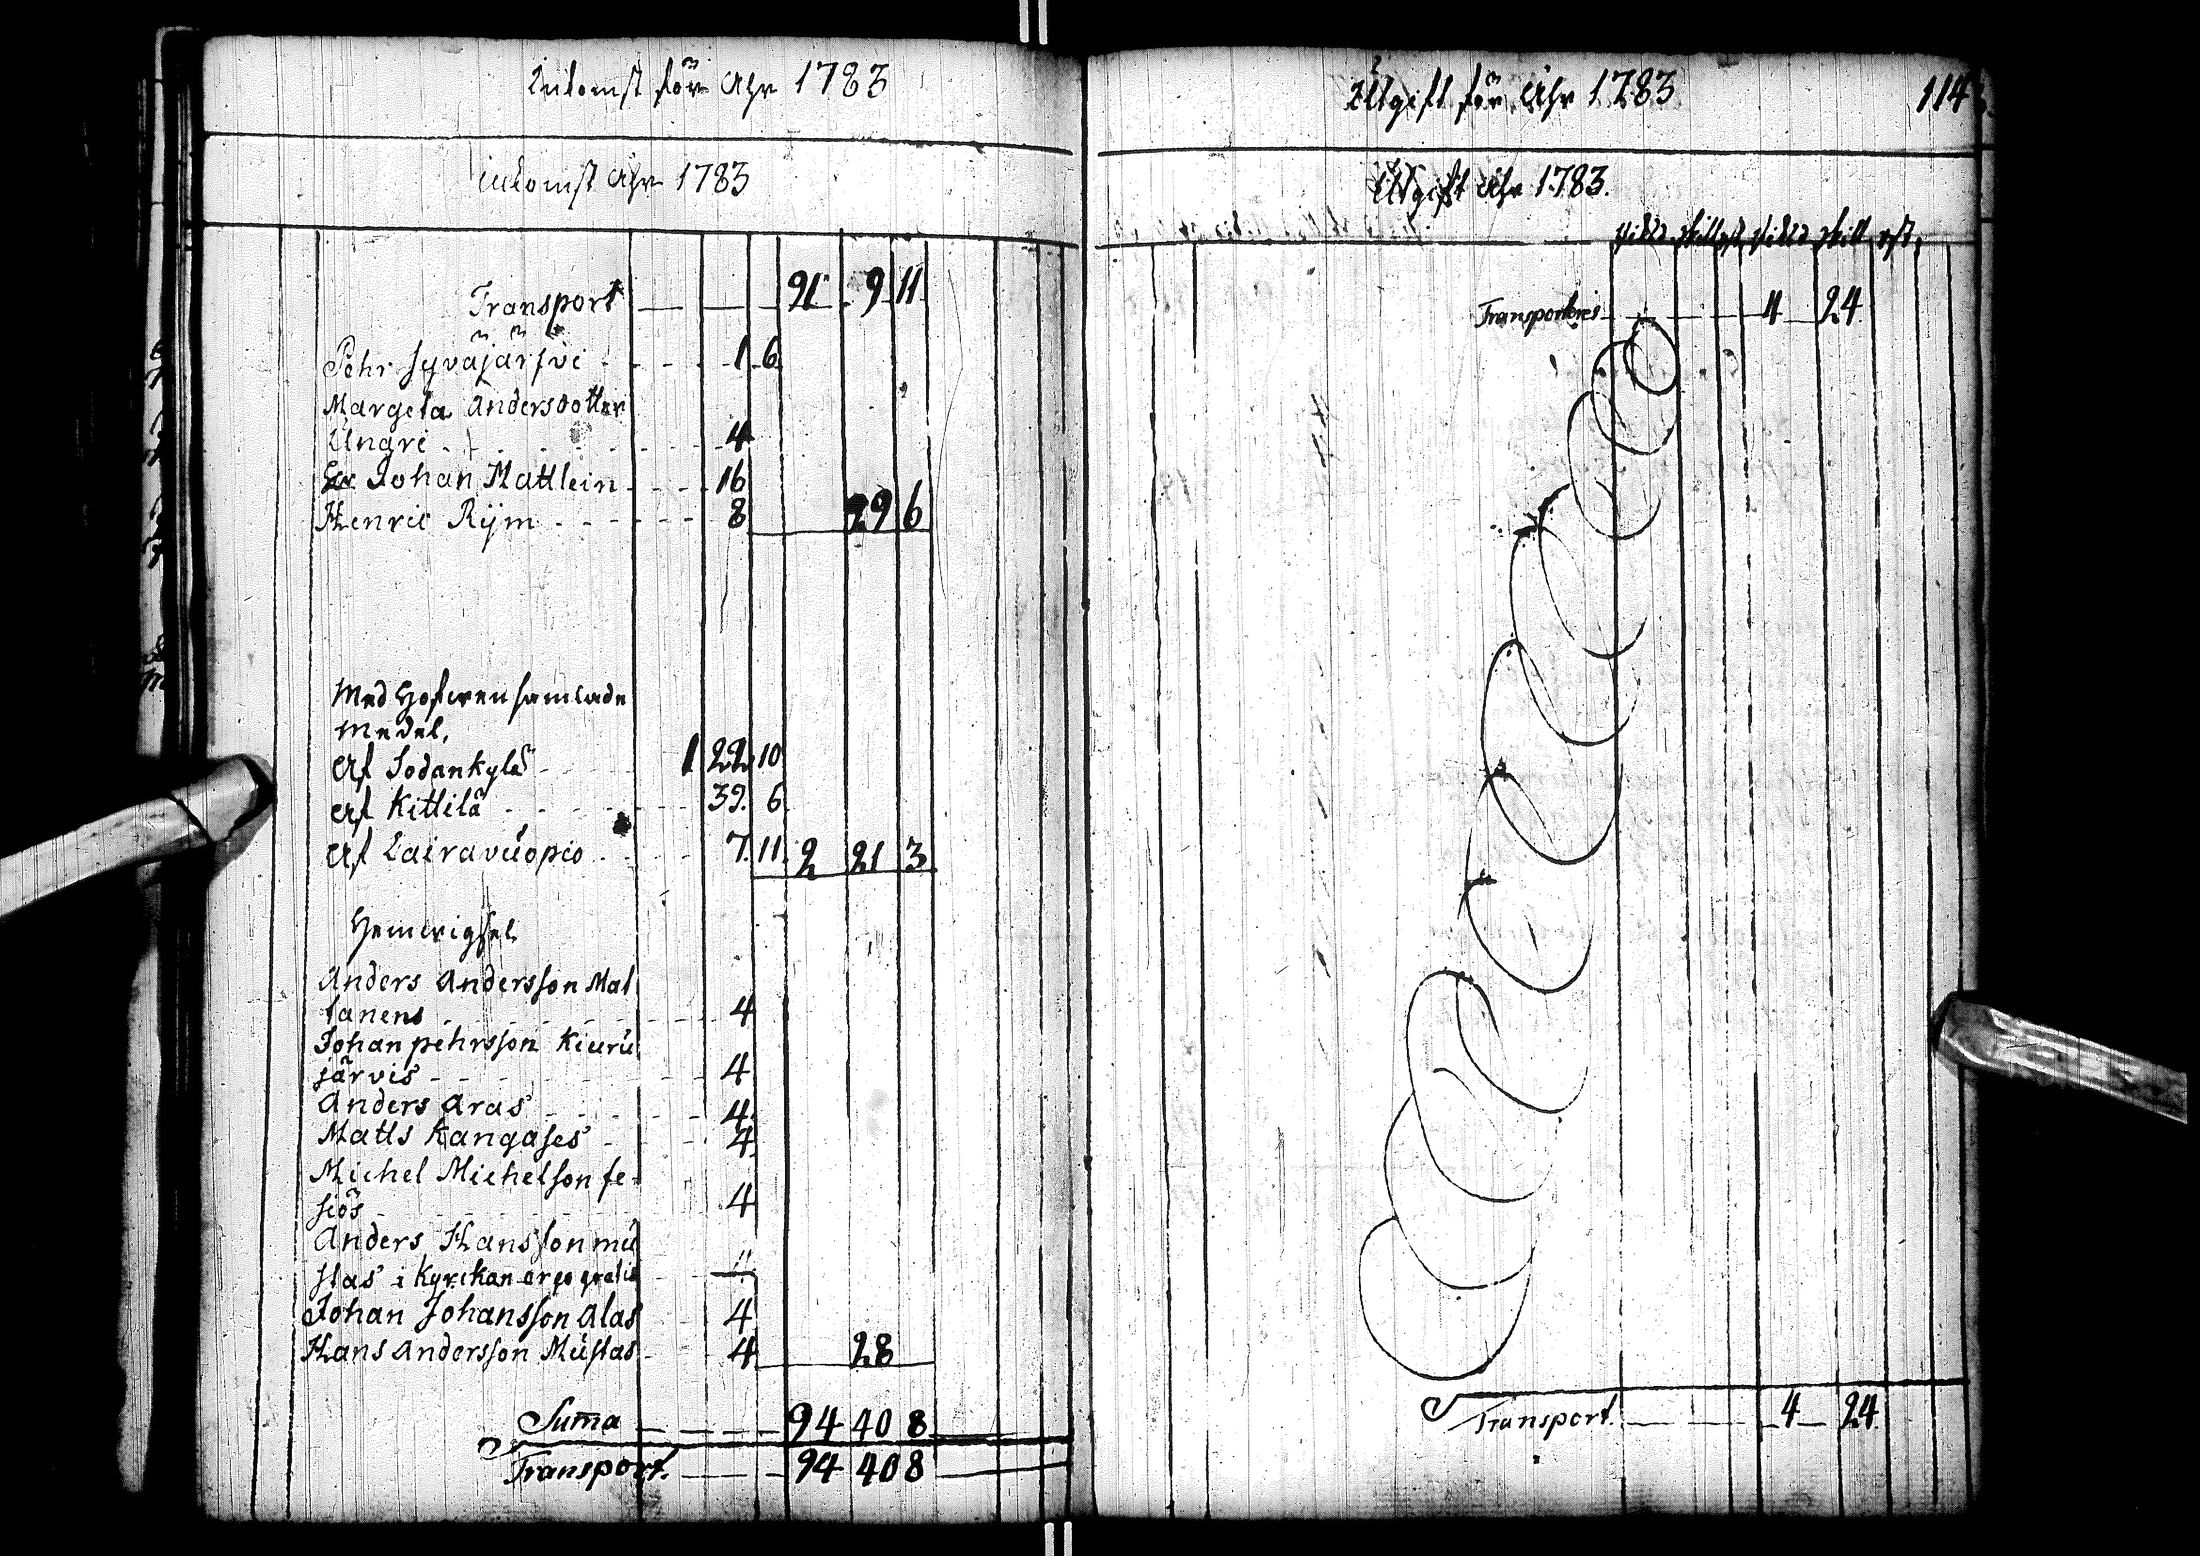 Inkomst för Ahr 1783
Inkomst Ahr 1783
Transport 91 9 11
Pehr Syväjärfvi 1 6
Margeta Andersdotter
Ungri 4
Hr Johan Mattlein 16
Henric Rijm 8 29 6
Med Hofwen samlade
medel,
Af Sodankylä 1 22 10
Af Kittilä 39 6
Af Lairavuopio 7 11 2 21 3
Hemvigsel
Anders Andersson Mat
tanens 4
Johan pehrsson Kiuru
järvis 4
Anders Aras 4
Matts Kangases 4
Michel Michelson se-
siös 4
Anders Hansson mu
stas i Kyrckan ergo gratis "
Johan Johansson Alas 4
Hans Andersson Mustas 4 28
Suma 94 40 8
Transport. 94 40 8
Utgift för Ahr 1783 114
Utgift Ahr 1783.
Rikld skill rst Rikld skill rst.
Transporteres 4 24
Transport. 4 24